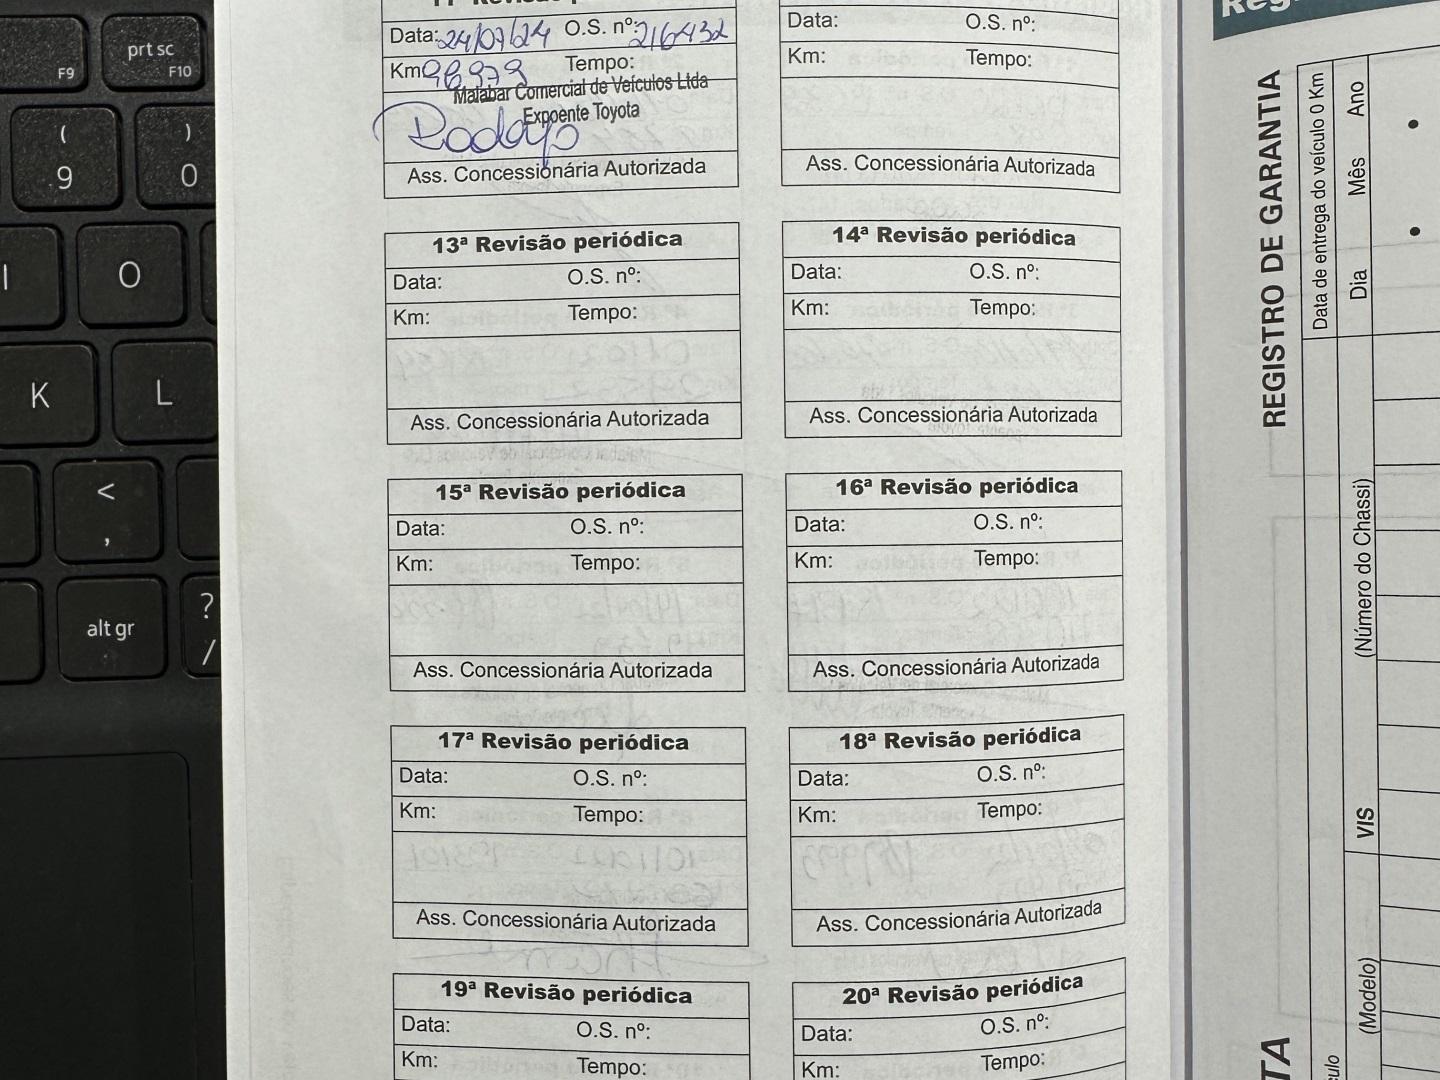 Data: 24/07/24 O.S. nº: 216432
Km 98.979 Tempo:
Malabar Comercial de Veículos Ltda
Expoente Toyota
Rodolfo
Ass. Concessionária Autorizada
Data: O.S. nº:
Km: Tempo:
Ass. Concessionária Autorizada
13ª Revisão periódica
Data: O.S. nº:
Km: Tempo:
Ass. Concessionária Autorizada
14ª Revisão periódica
Data: O.S. nº:
Km: Tempo:
Ass. Concessionária Autorizada
15ª Revisão periódica
Data: O.S. nº:
Km: Tempo:
Ass. Concessionária Autorizada
16ª Revisão periódica
Data: O.S. nº:
Km: Tempo:
Ass. Concessionária Autorizada
17ª Revisão periódica
Data: O.S. nº:
Km: Tempo:
Ass. Concessionária Autorizada
18ª Revisão periódica
Data: O.S. nº:
Km: Tempo:
Ass. Concessionária Autorizada
19ª Revisão periódica
Data: O.S. nº:
Km: Tempo:
20ª Revisão periódica
Data: O.S. nº:
Km: Tempo:
REGISTRO DE GARANTIA
Data de entrega do veículo 0 Km
Dia Mês Ano
(Número do Chassi)
VIS
(Modelo)
prt sc
F9
F10
( 9
) 0
O
K
L
<
,
alt gr
?
/